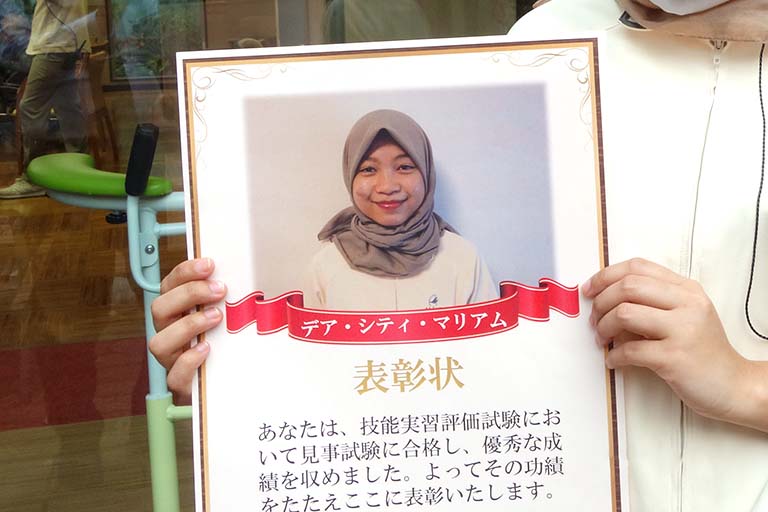 デア・シティ・マリアム
表彰状
あなたは、技能実習評価試験にお
いて見事試験に合格し、優秀な成
績を収めました。よってその功績
をたたえここに表彰いたします。